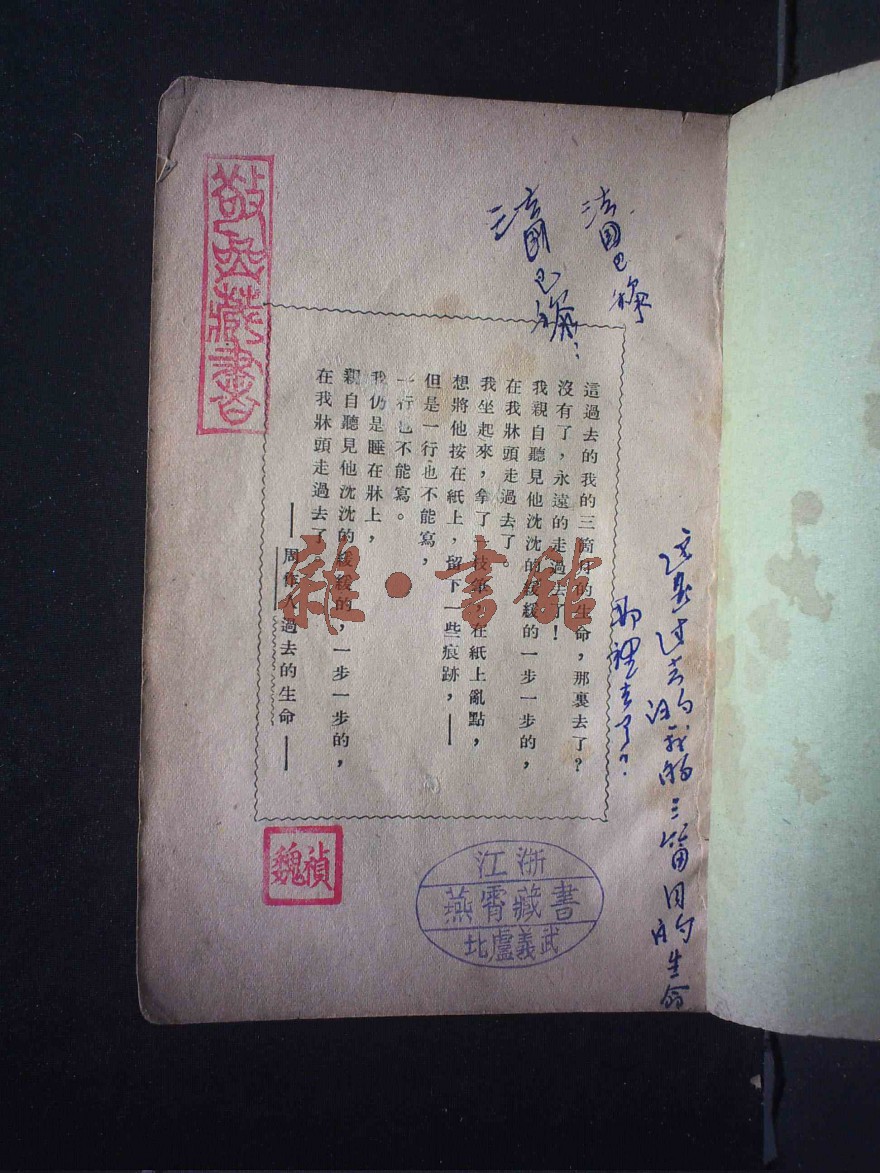 這過去的我的三箇月的生命，那裏去了？
沒有了，永遠的走過去了！
我親自聽見他沈沈的緩緩的一步一步的，
在我牀頭走過去了。
我坐起來，拿了一枝筆，在紙上亂點，
想將他按在紙上，留下一些痕跡，——
但是一行也不能寫，
一行也不能寫。
我仍是睡在牀上，
親自聽見他沈沈的緩緩的，一步一步的，
在我牀頭走過去了。
——周作人過去的生命——
那裡去了？
的我的三箇月的生命
藏書
魏禎
浙江
燕霄藏書
武義盧北
雜·書館